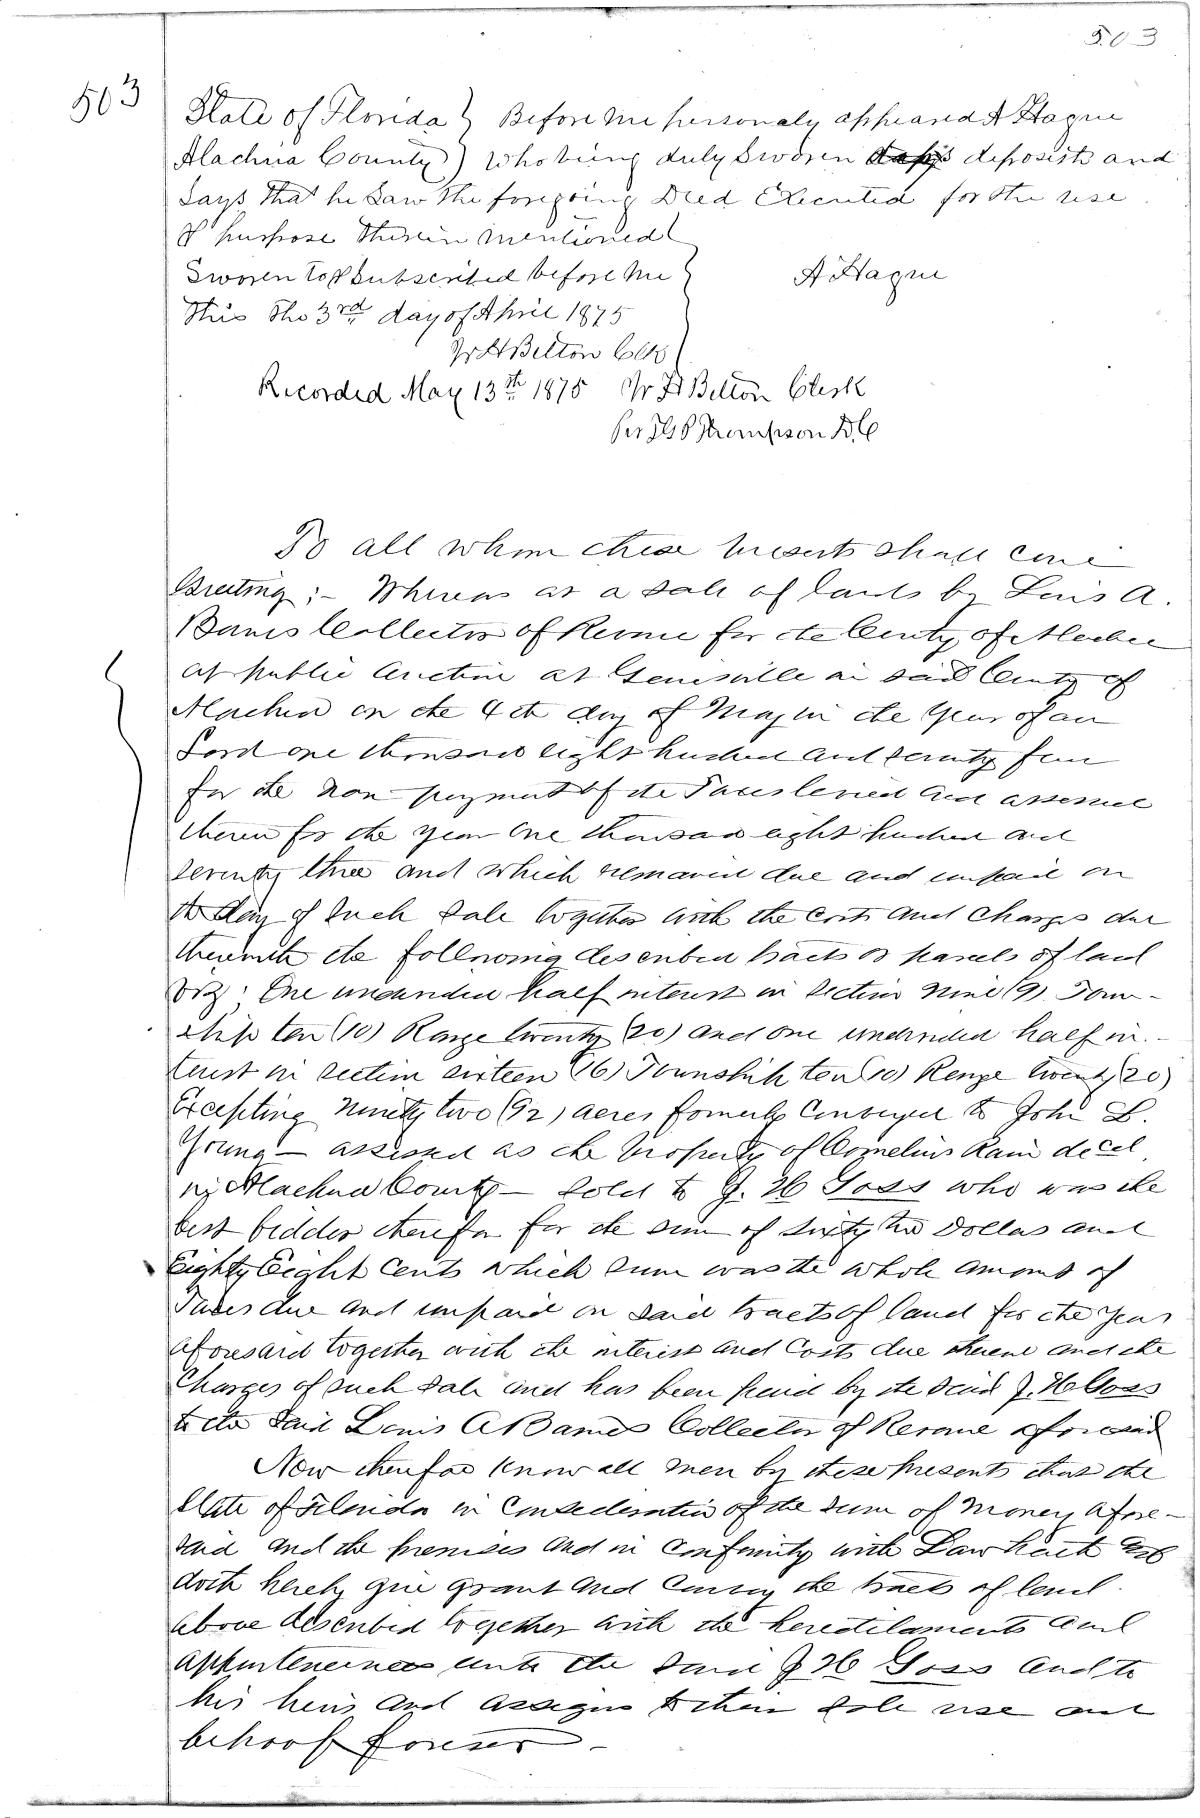 503
503
State of Florida } Before me personaly appeared A Hague
Alachua County } who being duly Sworen deposists and
Says that he Saw the foregoing Deed Executed for the use
& purpose therein mentioned
Sworen to & Subscribed before me } A Hague
this the 3rd day of April 1875
W H Belton Clk
Recorded May 13th 1875 W H Belton Clerk
Per T G P Thompson D.C
To all whom these presents shall come
Greeting :- Whereas at a sale of lands by Louis A.
Barnes Collector of Revenue for the County of Alachua
at public auction at Gainesville in said County of
Alachua on the 4th day of May in the year of our
Lord one thousand eight hundred and seventy four
for the non payment of the Taxes levied and assessed
therein for the year one thousand eight hundred and
seventy three and which remained due and unpaid on
the day of such sale together with the costs and charges due
therewith the following described tracts or parcels of land
viz: One undivided half interest in section nine (9) Town-
ship ten (10) Range twenty (20) and one undivided half in-
terest in section sixteen (16) Township ten (10) Range twenty (20)
Excepting ninety two (92) acres formerly conveyed to John L.
Young — assessed as the property of Cornelius Rain decd
in Alachua County — sold to J. H Goss who was the
best bidder therefor for the sum of sixty two Dollars and
Eighty Eight cents which sum was the whole amount of
Taxes due and unpaid on said tracts of land for the year
aforesaid together with the interest and costs due thereon and the
charges of such sale and has been paid by the said J. H Goss
to the said Louis A Barnes Collector of Revenue aforesaid
Now therefore Know all men by these presents that the
State of Florida in consederation of the sum of money afore-
said and the premises and in conformity with Law hath and
doth hereby give grant and convey the tracts of land
above described together with the hereditaments and
appurtenances unto the said J H Goss and to
his heirs and assigns to their sole use and
behoof forever —